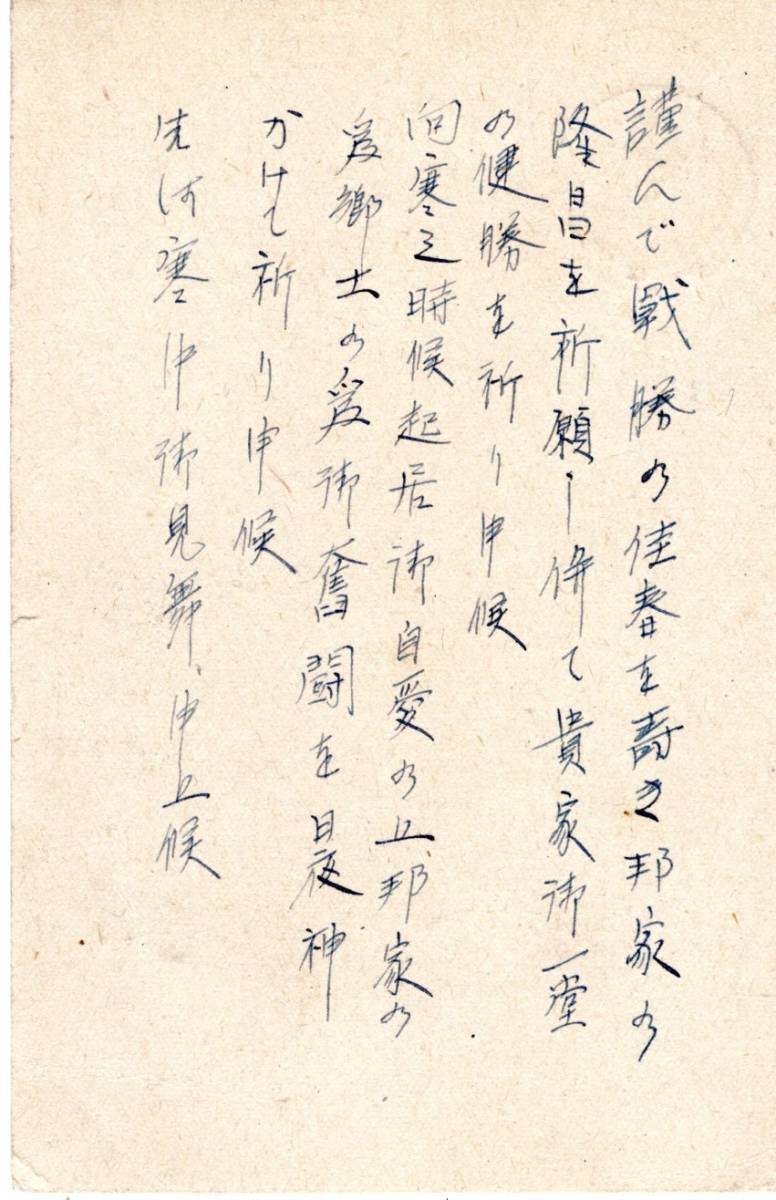 謹んで戦勝の佳春を壽き邦家の
隆昌を祈願し併て貴家御一堂
の健勝を祈り申候
向寒之時候起居御自愛の上邦家の
為郷土の為御奮闘を日夜神
かけて祈り申候
先は寒中御見舞申上候